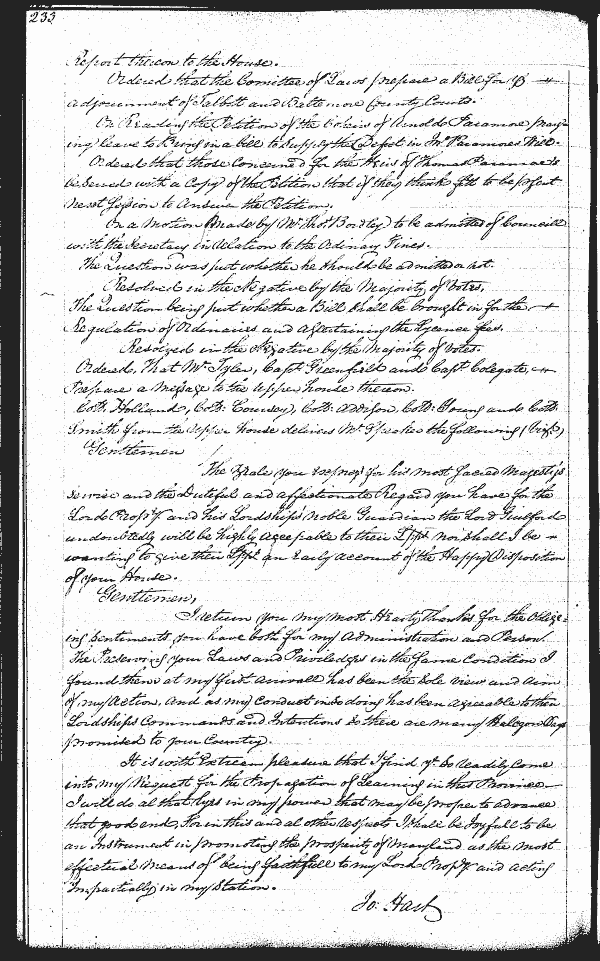 233
Report thereon to the House.
Ordered that the Comittee of Laws prepare a Bill for ye
adjournment of Talbott and Baltemore County Courts.
On Reading the Petition of the Heirs of Arnold Paramore pray-
ing leave to bring in a bill to Supply the Defect in Jno. Paramores Will.
Ordered that those Concerned for the Heirs of Thomas Paramore
be served with a Copy of the Petition that if they think fitt to be psent
next Session to Answer the Petition.
On a Motion made by Mr. Thos. Bordley to be admitted of Councill
with the Secretary in relation to the Ordinary Fines.
The Question was put whether he should be admitted or not.
Resolved in the Negative by the Majority of Votes.
The Question being put whether a Bill shall be brought in for the
Regulation of Ordinaries and ascertaining the Lycence fees.
Resolved in the Negative by the Majority of Votes.
Ordered, That Mr. Tyler, Capt. Greenfield and Capt. Colegate,
Prepare a Message to the upper house thereon.
Colo. Holland, Colo. Coursey, Colo. Addison, Colo. Young and Colo.
Smith from the Upper House delivers Mr. Speaker the following (vizt.)
Gentlemen
The Zeale you express for his most Sacred Majesty's
Service and the Dutiful and affectionate Regard you have for the
Lord Propry and his Lordships noble Guardian the Lord Guilford
undoubtedly will be highly agreeable to their Lspps nor shall I be
wanting to give their Lspps an Early account of the Happy Disposition
of your House.
Gentlemen,
I return you my most Hearty Thanks for the Oblige-
ing sentiments you have both for my Administration and Person.
The Preserving your Laws and Priviledges in the same Condition I
found them at my first arrivall has been the Sole view and aim
of my Action, and as my conduct in so doing has been agreeable to their
Lordships Commands and Intentions so there are many Halcyon Days
promised to your Country.
It is with Extream pleasure that I find ye so readily come
into my Request for the Propagation of Learning in this Province
I will do al that lyes in my power that may be proper to advance
that good end, For in this and al other respects I shall be Joyfull to be
an Instrument in promoting the prosperity of Maryland as the most
effectual Means of being faithfull to my Lord Propry and acting
Impartially in my Station.
Jo: Hart